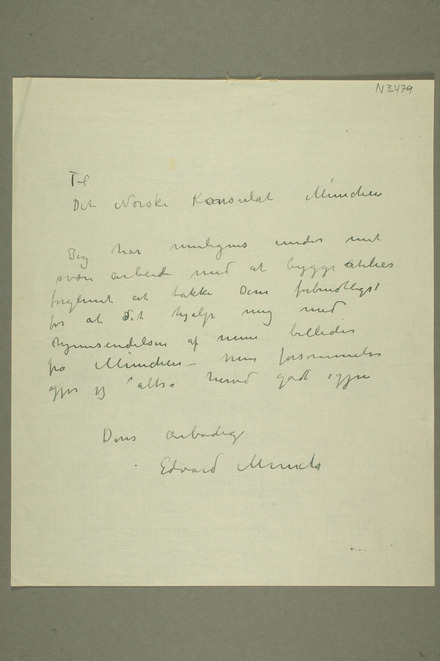 N 3479
Til
Det Norske Konsulat München
Jeg har muligens under mit
svære arbeide med at bygge atelier
forglemt at takke Dem forbindtligst
for at De hjalp meg med
hjemsendelsen af mine billeder
fra München – min forsømmelse
gjør jeg altså herved godt igjen
Deres ærbødig
Edvard Munch